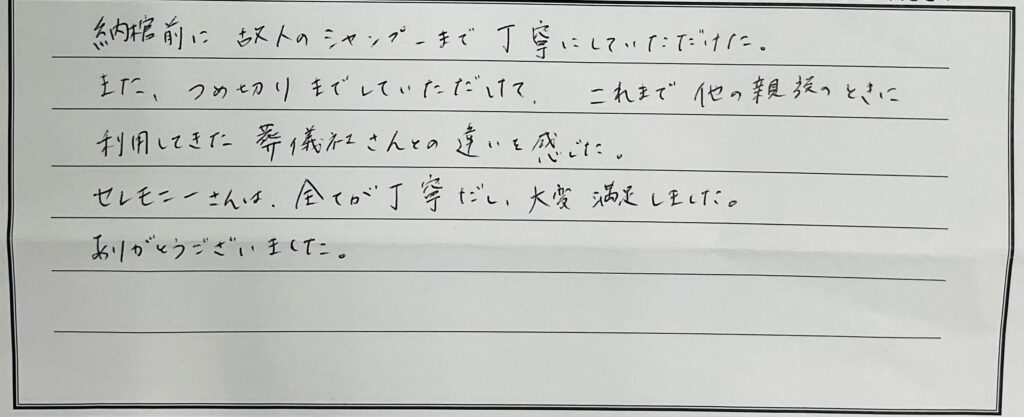 納棺前に 故人のシャンプーまで丁寧にしていただけた。
また、つめ切りまでしていただけて、これまで他の親族のときに
利用してきた葬儀社さんとの違いを感じた。
セレモニーさんは、全てが丁寧だし、大変満足しました。
ありがとうございました。